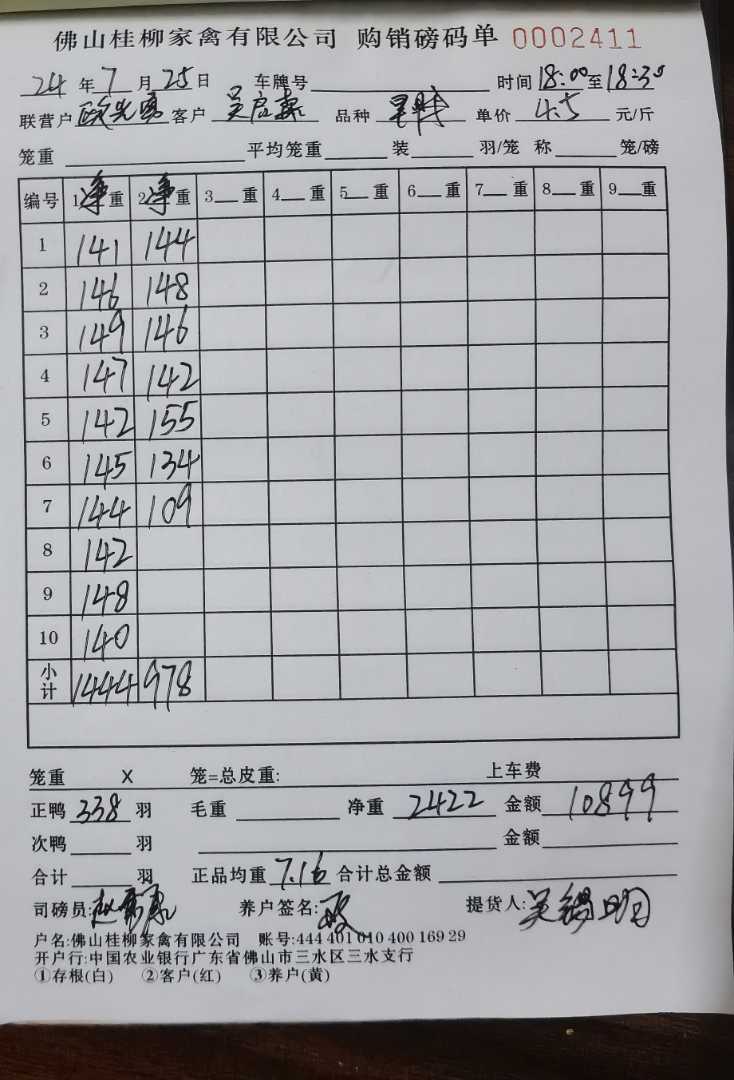 佛山桂柳家禽有限公司 购销磅码单 0002411
24 年 7 月 25 日 车牌号 时间 18:00 至 18:30
联营户 欧光勇 客户 品种 单价 4.5 元/斤
笼重 平均笼重 装 羽/笼 称 笼/磅
编号 1净重 2净重 3 重 4 重 5 重 6 重 7 重 8 重 9 重
1 141 144
2 146 148
3 149 146
4 147 142
5 142 155
6 145 134
7 144 109
8 142
9 148
10 140
小计 1444 978
笼重 X 笼=总皮重: 上车费
正鸭 338 羽 毛重 净重 2422 金额 10899
次鸭 羽 金额
合计 羽 正品均重 7.16 合计总金额
司磅员: 养户签名: 提货人: 吴锡明
户名:佛山桂柳家禽有限公司 账号:444 401 010 400 169 29
开户行:中国农业银行广东省佛山市三水区三水支行
①存根(白) ②客户(红) ③养户(黄)